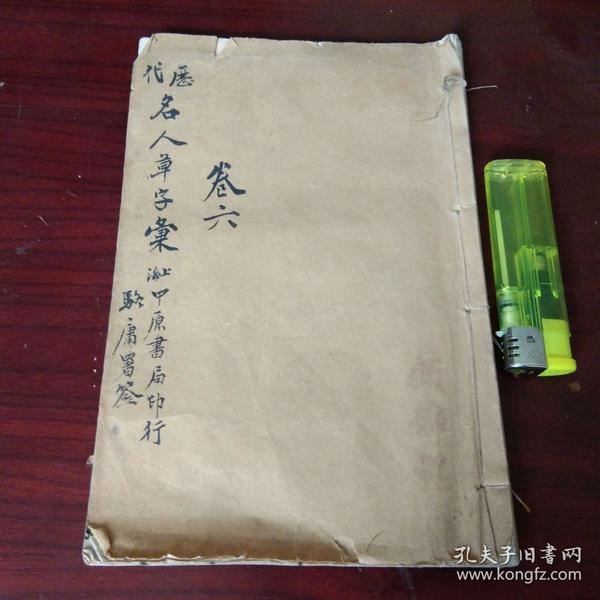 歷代名人草字彙
上海中原書局印行
駱庸署簽
卷六
孔夫子旧书网
www.kongfz.com